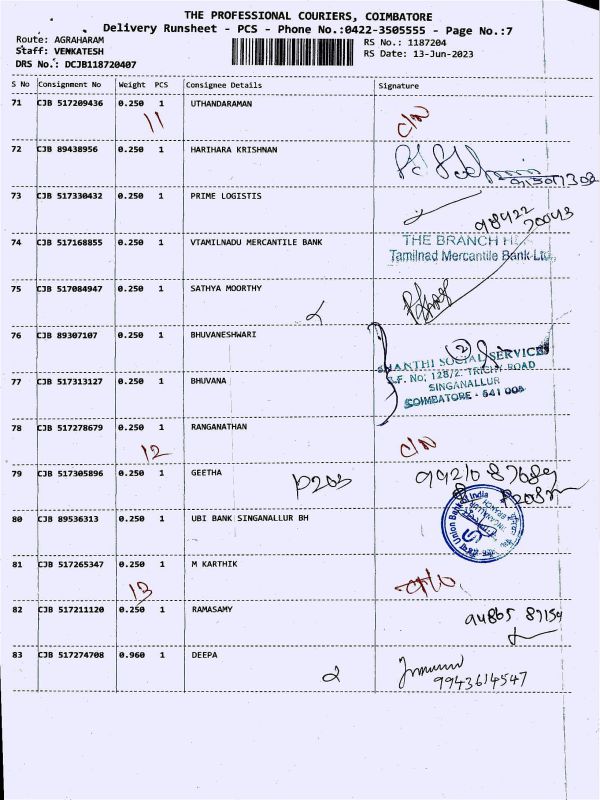 THE PROFESSIONAL COURIERS, COIMBATORE
Delivery Runsheet - PCS - Phone No.:0422-3505555 - Page No.:7
Route: AGRAHARAM
RS No.: 1187204
Staff: VENKATESH
RS Date: 13-Jun-2023
DRS No.: DCJB118720407
S No Consignment No Weight PCS Consignee Details Signature
71 CJB 517209436 0.250 1 UTHANDARAMAN
11 C/N
72 CJB 89438956 0.250 1 HARIHARA KRISHNAN
73 CJB 517330432 0.250 1 PRIME LOGISTIS
98422
70043
74 CJB 517168855 0.250 1 VTAMILNADU MERCANTILE BANK
THE BRANCH
Tamilnad Mercantile Bank Ltd.,
75 CJB 517084947 0.250 1 SATHYA MOORTHY
76 CJB 89307107 0.250 1 BHUVANESHWARI
SHANTHI SOCIAL SERVICES
S.F. No: 128/2. TRICHY ROAD
77 CJB 517313127 0.250 1 BHUVANA
SINGANALLUR
COIMBATORE - 641 005
78 CJB 517278679 0.250 1 RANGANATHAN
12 C/N
79 CJB 517305896 0.250 1 GEETHA
P203
80 CJB 89536313 0.250 1 UBI BANK SINGANALLUR BH
Union Bank of India
81 CJB 517265347 0.250 1 M KARTHIK
13
82 CJB 517211120 0.250 1 RAMASAMY
94865 87154
83 CJB 517274708 0.960 1 DEEPA
9943614547